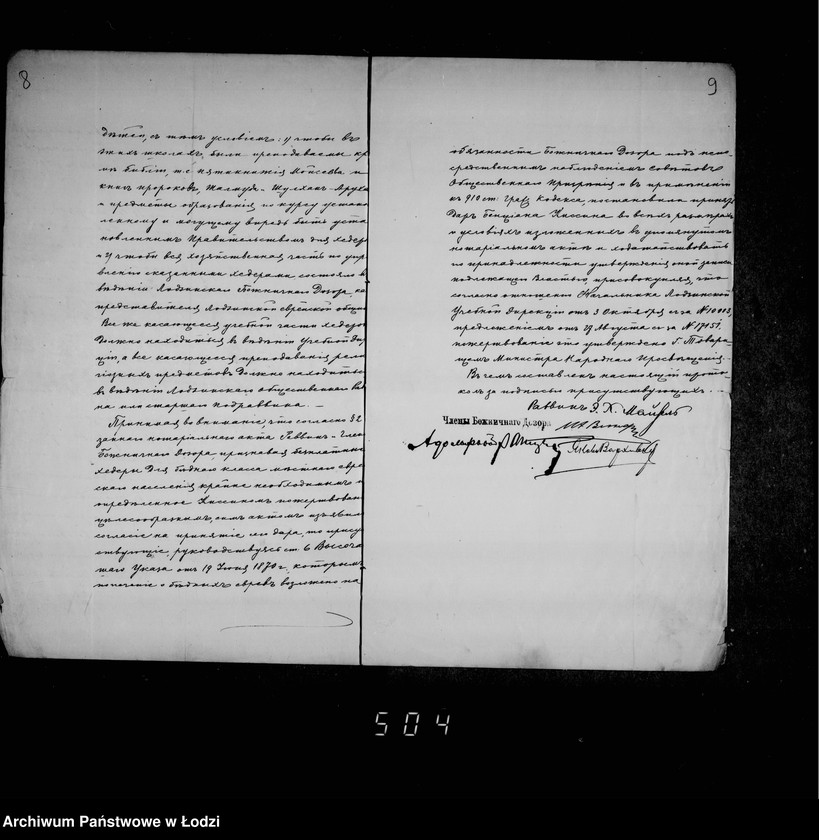 8
детей, съ тѣмъ условіемъ: 1) чтобы въ
этихъ школахъ, были преподаваемы кр
мѣ библіи, т. е. пятикнижія Моисеева и
книгъ пророковъ, Талмудъ - Шулханъ - Аруха
и предметы образованія по курсу устано
вленному и могущему впредь быть уста
новленнымъ Правительствомъ для хедеро
и 2) чтобы вся хозяйственная часть по упр
вленію сказанными хедерами состояла въ
вѣдѣніи Лодзинскаго Божничнаго Дозора, ка
представителя Лодзинской еврейской общи
Все же касающееся учебной части хедеро
должно находиться въ вѣдѣніи Учебной Ди
ціи, а все касающееся преподаванія рели
гіозныхъ предметовъ должно находиться
въ вѣдѣніи Лодзинскаго общественнаго Рав
на или старшаго подраввина. —
Принимая во вниманіе, что согласно § 2
заннаго нотаріальнаго акта Раввинъ и Член
Божничнаго Дозора, признавая безплатны
хедеры для бѣднаго класса мѣстнаго евре
скаго населенія крайне необходимымъ и
опредѣленное Хиссиномъ пожертвован
цѣлесообразнымъ, симъ актомъ изъявили
согласіе на принятіе его дара, то присут
ствующіе, руководствуясь ст. 6 Высоча
шаго Указа отъ 19 Іюня 1870 г., которымъ
попеченіе о бѣдныхъ евреяхъ возложено на
9
обязанности Божничнаго Дозора подъ непо-
средственнымъ наблюденіемъ Совѣтовъ
Общественнаго Призрѣнія и въ примѣненіи
къ 910 ст. Граж. Кодекса, постановили принять
даръ Хиссина во всемъ
и условіяхъ изложенныхъ въ упомянутомъ
нотаріальномъ актѣ и ходатайствовать
по принадлежности утвержденія оной записи
подлежащею Властью, присовокупляя, что
согласно отношенія Начальника Лодзинской
Учебной Дирекціи отъ 3 Октября с. г. за № 10003,
предложеніемъ отъ 29 Августа с. г. за № 17151,
пожертвованіе это утверждено Г. Товари-
щемъ Министра Народнаго Просвѣщенія. —
Въ чемъ составленъ настоящій прото-
колъ за подписью присутствующихъ. —
Раввинъ Э. Х. Майзель
Члены Божничнаго Дозора
Адольфъ
504
Archiwum Państwowe w Łodzi